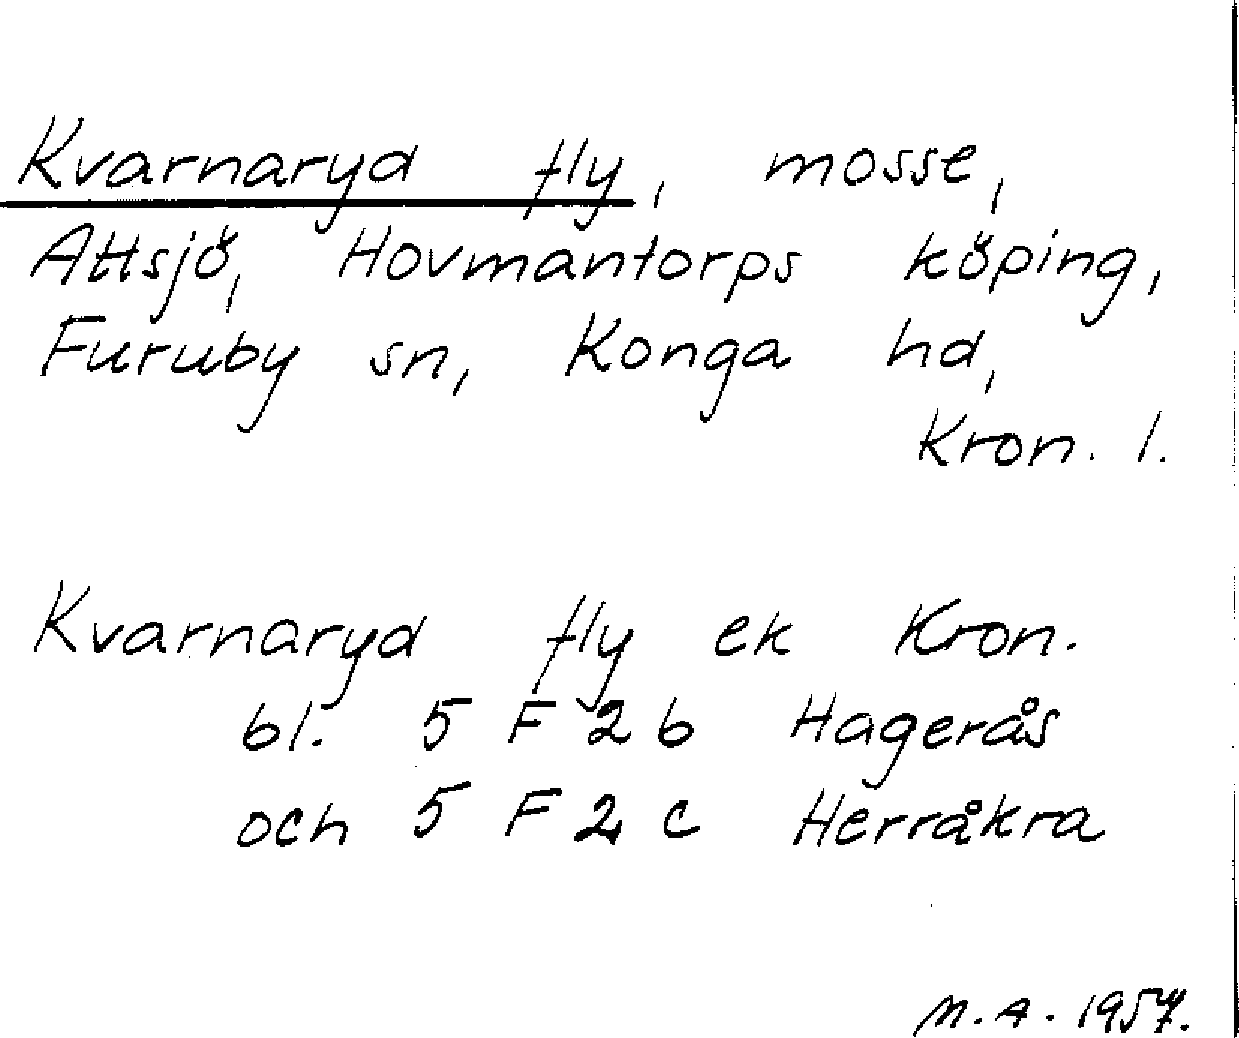 Kvarnaryd fly, mosse,
Attsjö, Hovmantorps köping,
Furuby sn, Konga hd,
Kron. l.
Kvarnaryd fly ek Kron.
bl. 5 F 2 b Hagerås
och 5 F 2 c Herråkra
M. A. 1957.